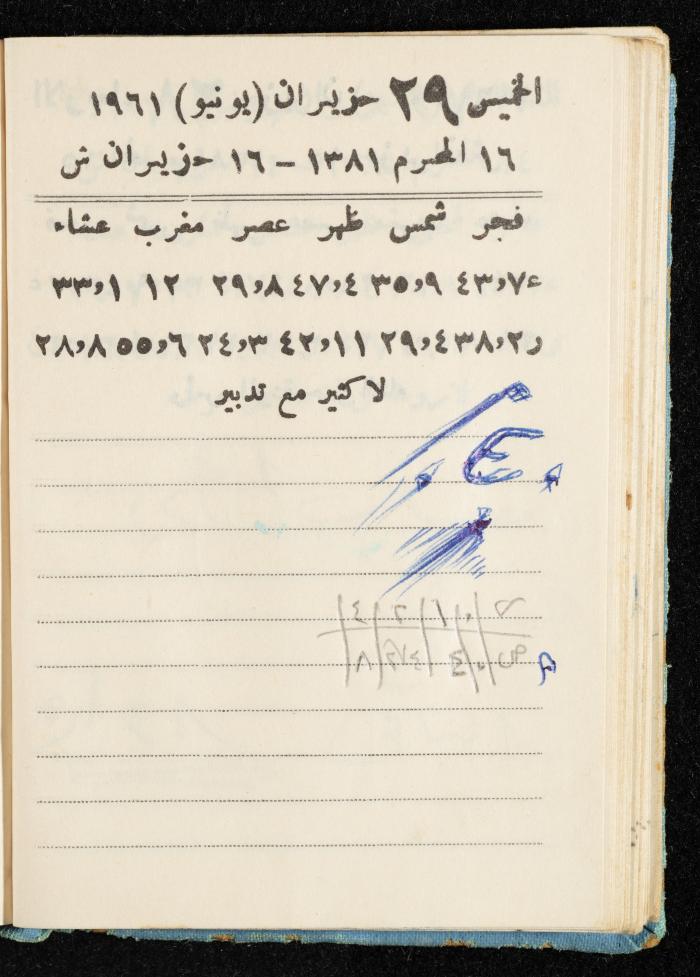 الخميس ٢٩ حزيران (يونيو) ١٩٦١
١٦ المحرم ١٣٨١ – ١٦ حزيران ش
فجر شمس ظهر عصر مغرب عشاء
ع٧٫٤٣ ٩٫٣٥ ٤٫٤٧ ٨٫٢٩ ١٢ ١٫٣٣
ر٢٫٣٨ ٤٫٢٩ ١١٫٤٢ ٣٫٢٤ ٦٫٥٥ ٨٫٢٨
لا كثير مع تدبير